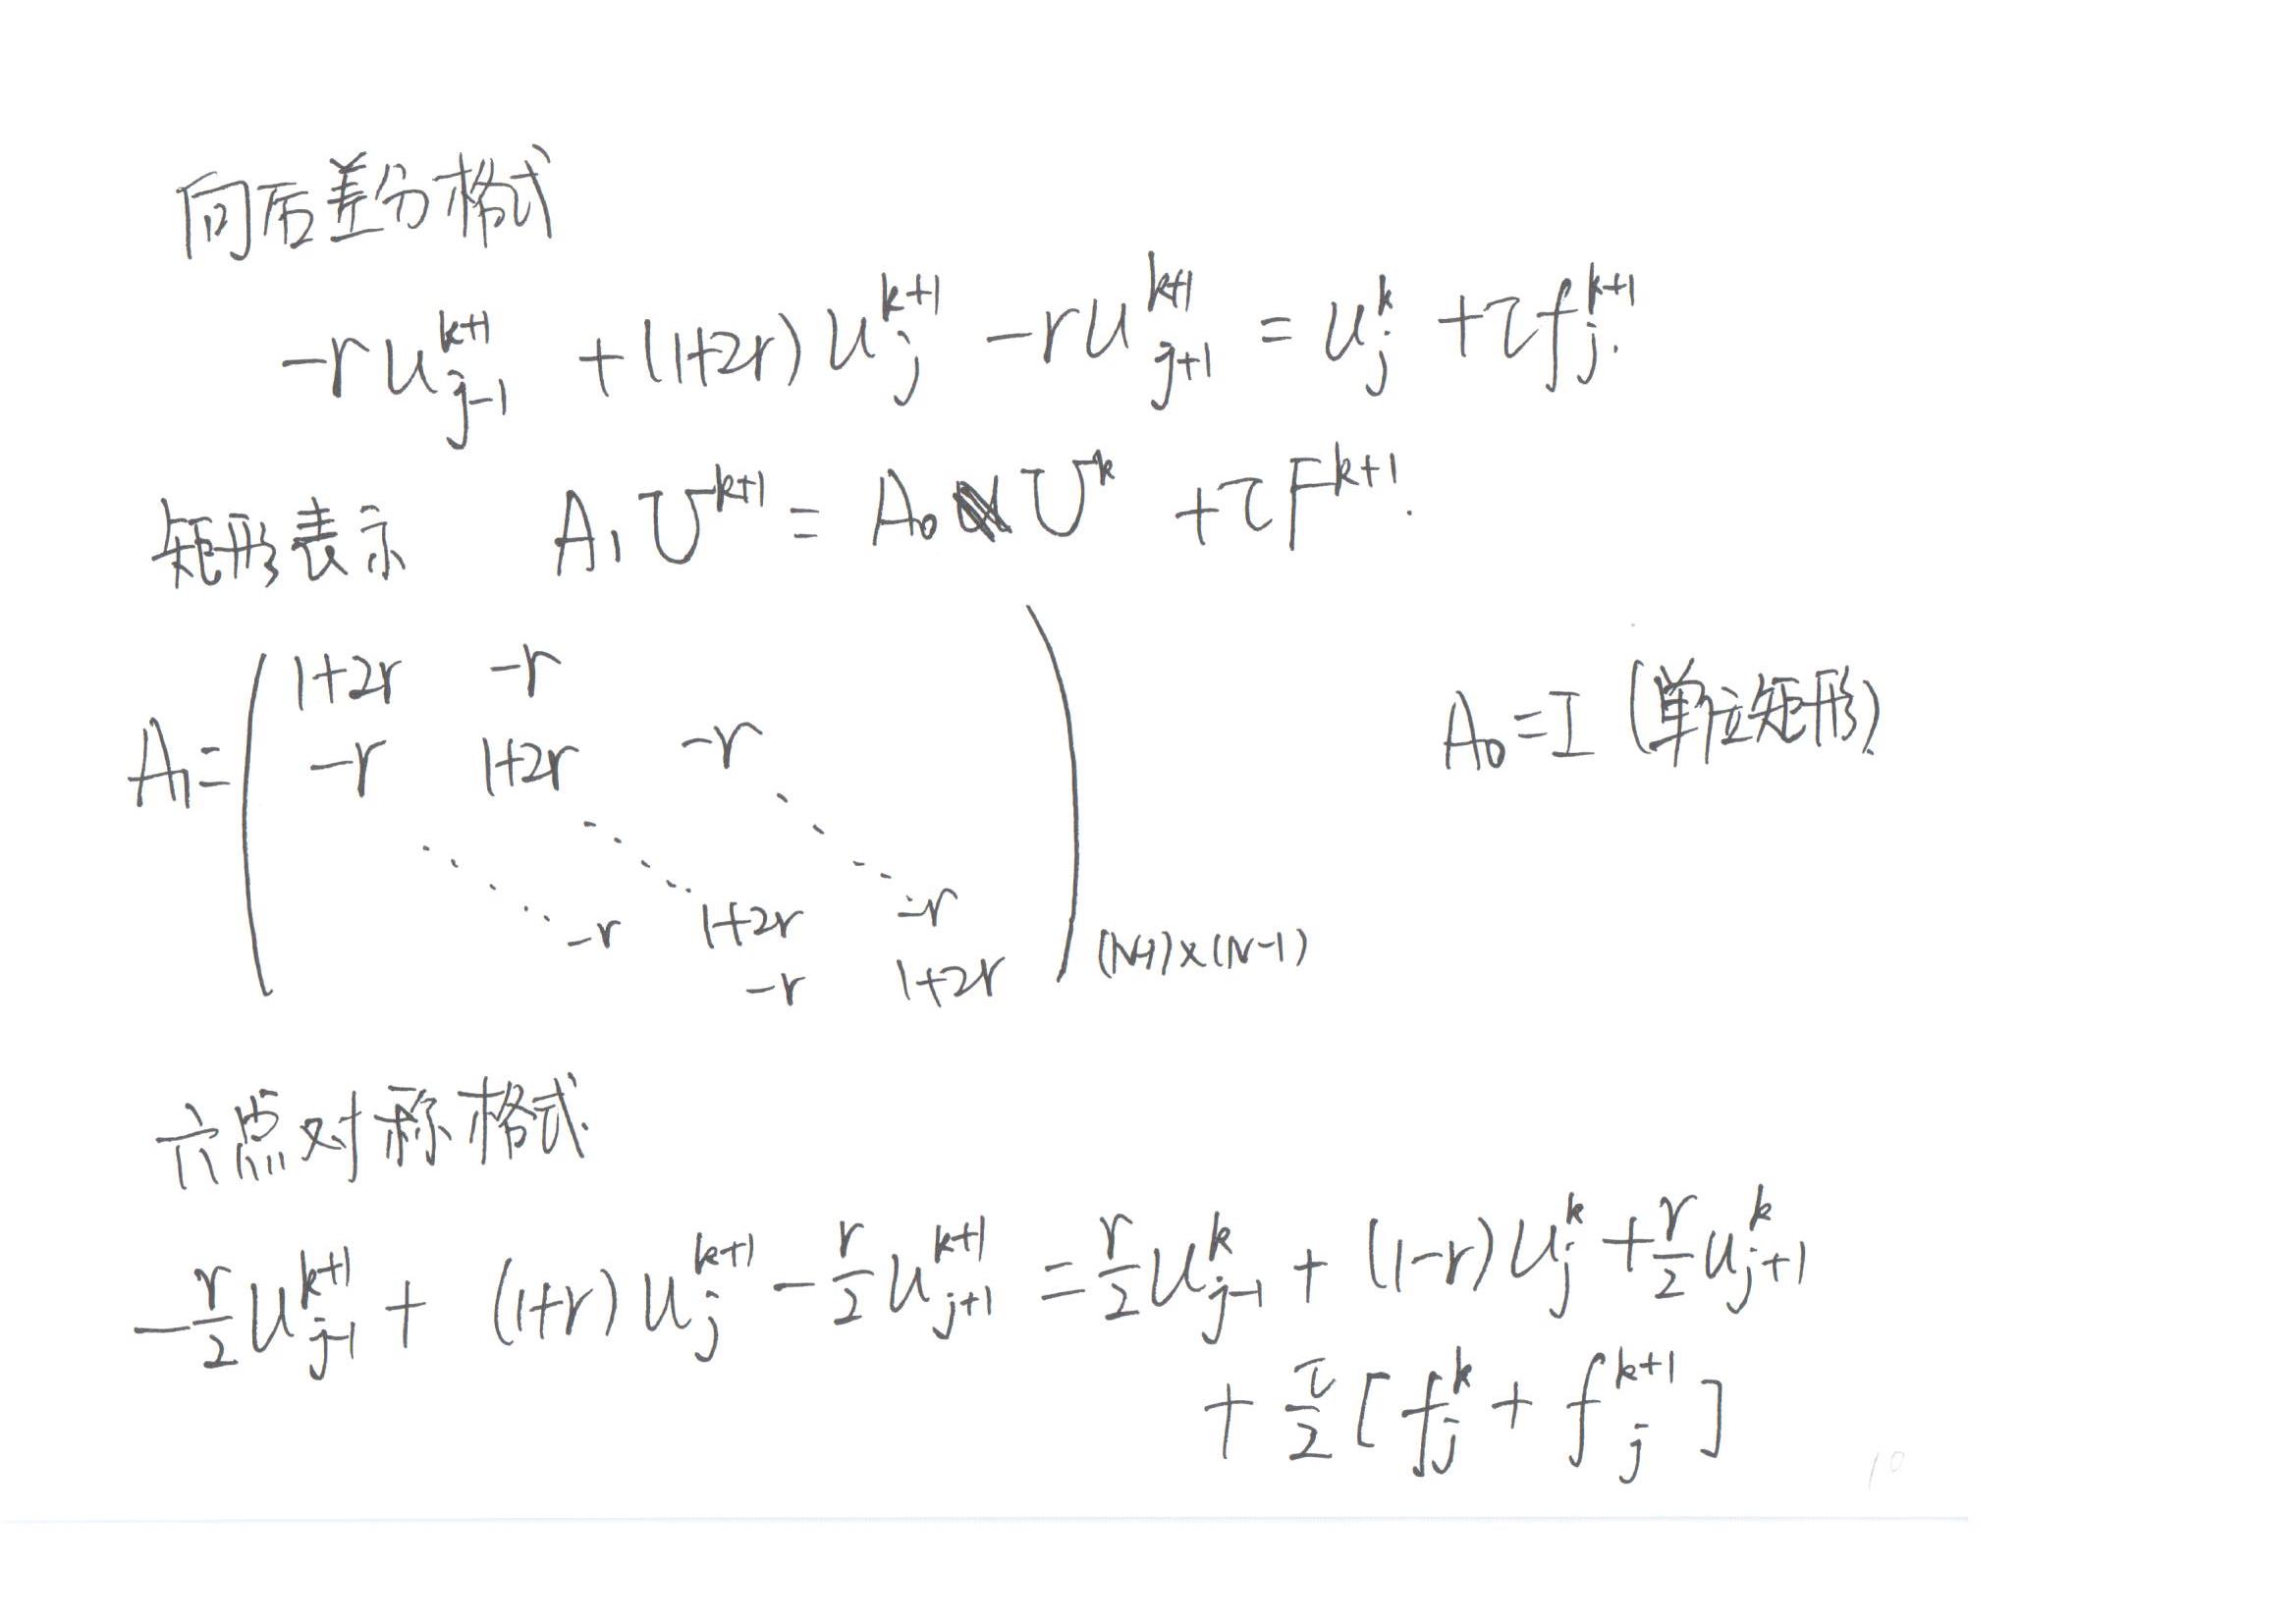 向后差分格式
-ru_{j-1}^{k+1} + (1+2r)u_j^{k+1} - ru_{j+1}^{k+1} = u_j^k + τf_j^{k+1}.
矩形表示 A_1 U^{k+1} = A_0 U^k + τF^{k+1}.
1+2r -r
A_1= -r 1+2r -r A_0=I (单位矩形)
-r 1+2r -r
-r 1+2r (N-1)×(N-1)
六点对称格式.
-\frac{r}{2}u_{j-1}^{k+1} + (1+r)u_j^{k+1} - \frac{r}{2}u_{j+1}^{k+1} = \frac{r}{2}u_{j-1}^k + (1-r)u_j^k + \frac{r}{2}u_{j+1}^k
+ \frac{τ}{2}[f_j^k + f_j^{k+1}]
10